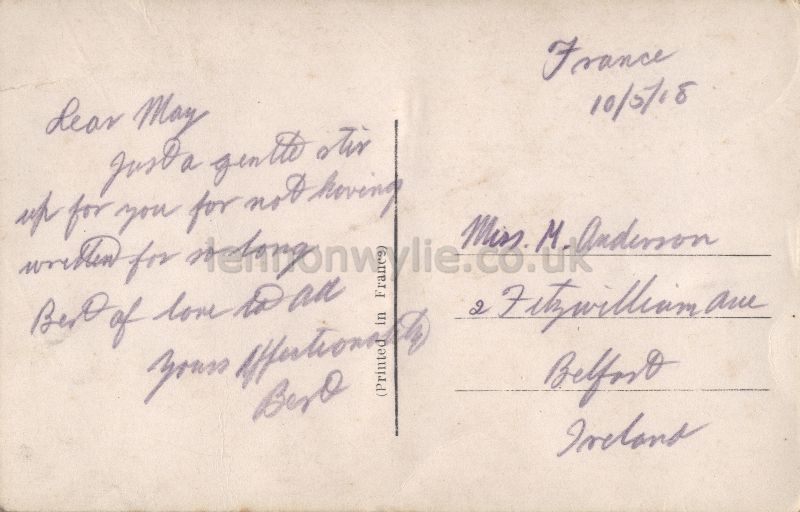 France
10/5/18
Dear May
Just a gentle stir
up for you for not having
written for so long
Best of love to all
Yours Affectionately
Bert
(Printed in France)
Miss. M. Anderson
2 Fitzwilliam Ave
Belfast
Ireland
lennonwylie.co.uk